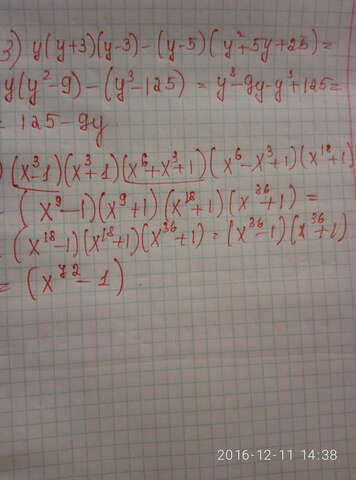 3) y(y+3)(y-3)-(y-5)(y²+5y+25)=
y(y²-9)-(y³-125)=y³-9y-y³+125=
= 125-9y
) (x³-1)(x³+1)(x⁶+x³+1)(x⁶-x³+1)(x¹⁸+1)
(x⁹-1)(x⁹+1)(x¹⁸+1)(x³⁶+1)=
(x¹⁸-1)(x¹⁸+1)(x³⁶+1)=(x³⁶-1)(x³⁶+1)
= (x⁷²-1).
2016-12-11 14:38